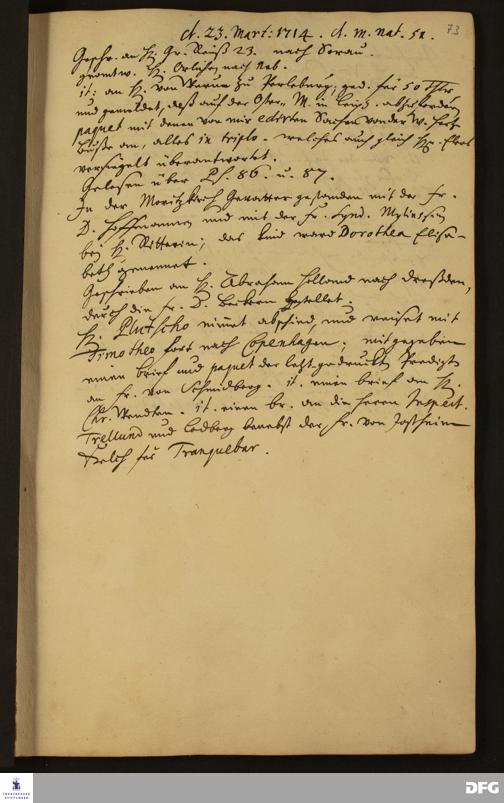 d. 23. Mart: 1714. d. m. nat. 51. 73
Geschr. an H. Gr. Reuß 23. nach Sorau.
geantw. H. Orlich nach
it: an H. von zu Perleburg; ged. für 50 Thlr
und gemeldet, daß auf der Oster-M. in Leipz. abzufordern
paquet mit denen von mir edirten Sachen von der W.
Buße an, alles in triplo. welches auch gleich H. Elers
versiegelt überantwortet.
Gelesen über Ps. 86. u. 87.
In der Moritzkirch Gevatter gestanden mit der Fr.
D. Hoffmannin und mit der Fr. Synd. Myliussin
bey H. Ritterin; das Kind ward Dorothea Elisa-
beth genennet.
Geschrieben an H. Abraham Holland nach Dreßden,
durch die Fr. D. bestellet.
H. Plutscho nimmt abschied, und reiset mit
Timotheo fort nach Copenhagen; mitgegeben
einen brief und paquet der letzt gedruckten Predigten
an Fr. von Schmidberg. it. einen brief an H.
Chr. Wendten. it. einen br. an die Herrn Inspect.
Trellund und Lodberg benebst der Fr. von
Kelch für Tranquebar.
FRANCKESCHE STIFTUNGEN
DFG